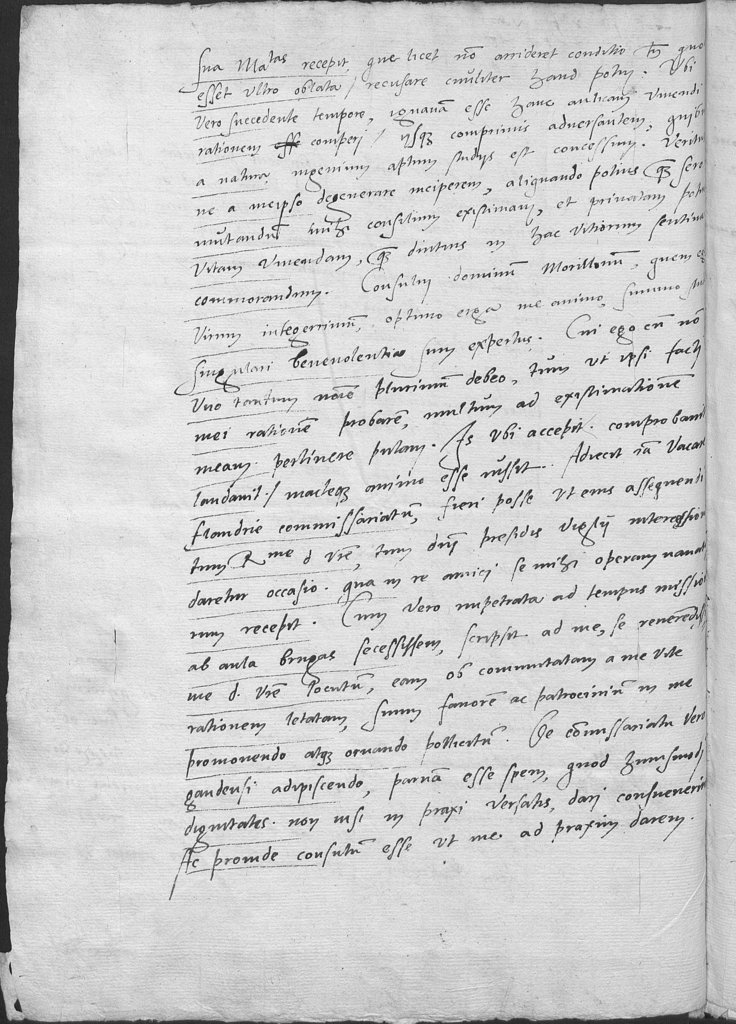 Sua Ma.tas recepit, que licet nō arrideret conditio, tn̄ quo
esset ultro oblata / recusare civiliter haud potui. Ubi
vero succedente tempore, ignavam esse hanc aulicam vivendi
rationem comperi / ijsq; comprimis adversantem, quibus
a natura ingenium aptum studijs est concessum. Veritus
ne a meipso degenerare inciperem, aliquando potius q̄ sero
mutandū mihi consilium existimavi, et privatam potius
vitam vivendam, q̄ diutius in hac vitiorum sentina
commorandum. Consului dominum Morillonum, quem et
virum integerrimum, optimo erga me animo, summo
singulari benevolentia sum expertus. Cui ego cū nō
uno tantum noīe plurimum debeo, tum ut ipsi facti
mei rationē probarē, multum ad existimationē
meam pertinere putavi. Is ubi accepit, comprobavit
laudavit / macteq; animo esse iussit. Adiecit iā vacare
flandrie commissariatum, fieri posse ut eius assequendi
tum R me d vrē, tum dn̄i presidis Viglij intercessione
daretur occasio. qua in re amici se mihi operam navaturum
recepit. Cum vero impetrata ad tempus missione
ab aula brugas secessissem, scripsit ad me, se reverendiss
me d. vrē locutum, eam ob commutatam a me vite
rationem letatam, suum favorē ac patrociniū in me
promovendo atq; ornando pollicitum. De cōmissariatu vero
gandensi adipiscendo, parvam esse spem, quod huiusmodi
dignitates non nisi in praxi versatis, dari consueverint
Ac proinde consultum esse ut me ad praxim darem.